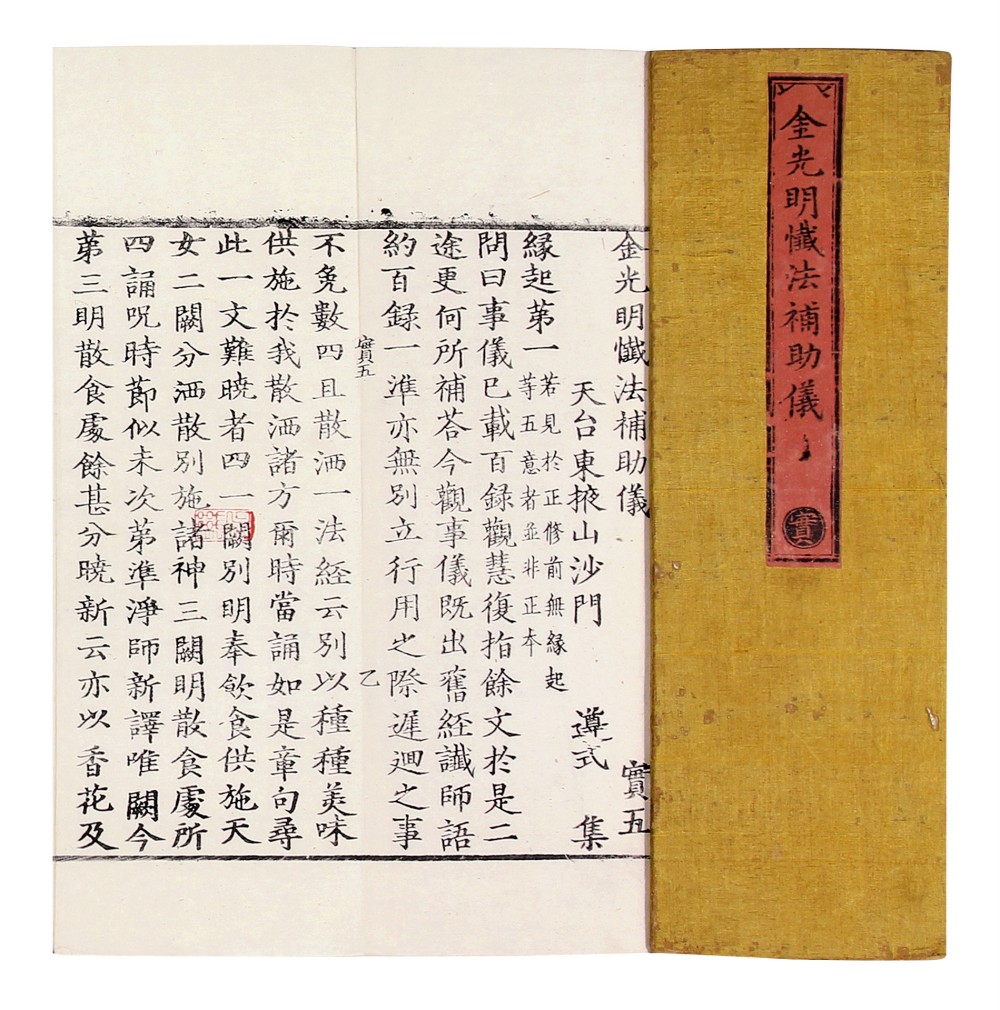 金光明懺法補助儀
實
金光明懺法補助儀 實五
天台東掖山沙門 遵式 集
緣起第一 若見於正修前無緣起
等五意者並非正本
問曰事儀已載百錄觀慧復指餘文於是二
途更何所補荅今觀事儀既出舊經讖師語
約百錄一準亦無別立行用之際遲迴之事
實五 乙
不免數四且散洒一法經云別以種種美味
供施於我散洒諸方爾時當誦如是章句尋
此一文難曉者四一闕別明奉飲食供施天
女二闕分洒散別施諸神三闕明散食處所
四誦呪時節似未次第準淨師新譯唯闕今
第三明散食處餘甚分曉新云亦以香花及